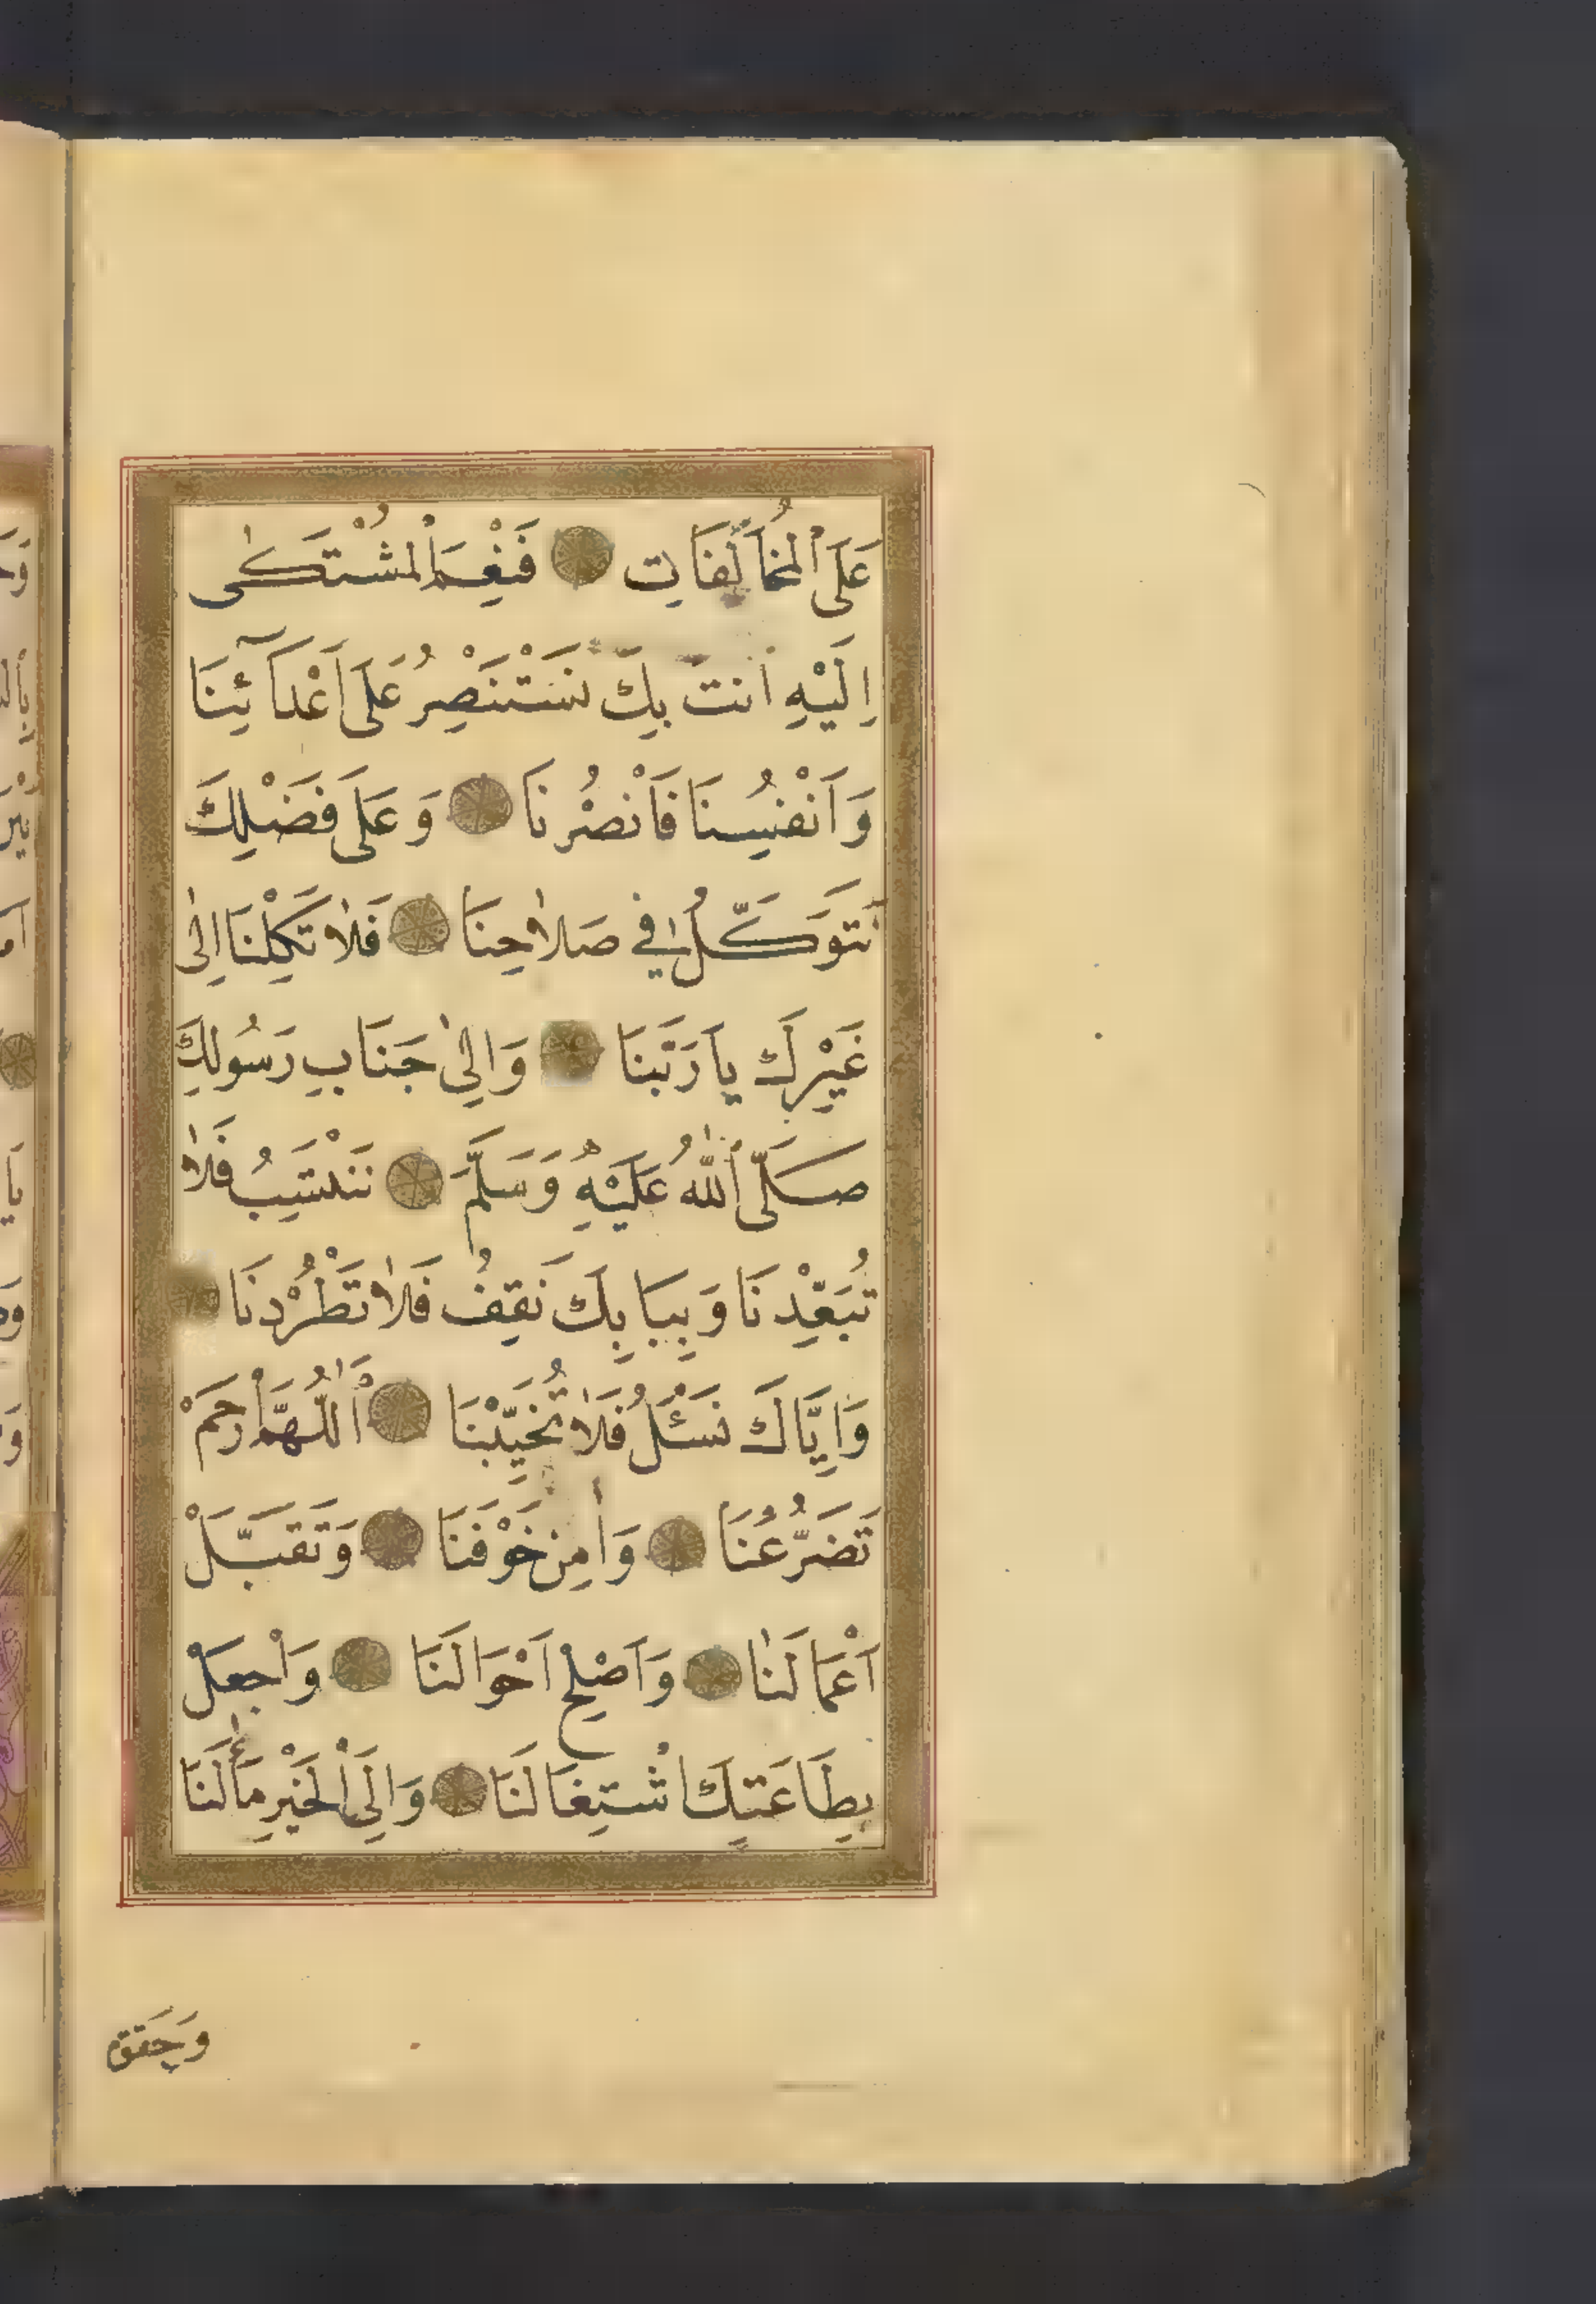 عَلَى الْمُخَالَفَاتِ فَنِعْمَ الْمُشْتَكٰى
اِلَيْهِ اَنْتَ بِكَ نَسْتَنْصِرُ عَلَى اَعْدَآئِنَا
وَاَنْفُسِنَا فَانْصُرْنَا وَعَلَى فَضْلِكَ
نَتَوَكَّلُ فِي صَلَاحِنَا فَلَا تَكِلْنَا اِلٰى
غَيْرِكَ يَا رَبَّنَا وَاِلٰى جَنَابِ رَسُولِكَ
صَلَّى اللّٰهُ عَلَيْهِ وَسَلَّمَ نَنْتَسِبُ فَلَا
تُبَعِّدْنَا وَبِبَابِكَ نَقِفُ فَلَا تَطْرُدْنَا
وَاِيَّاكَ نَسْئَلُ فَلَا تُخَيِّبْنَا اَللّٰهُمَّ ارْحَمْ
تَضَرُّعَنَا وَاٰمِنْ خَوْفَنَا وَتَقَبَّلْ
اَعْمَالَنَا وَاَصْلِحْ اَحْوَالَنَا وَاجْعَلْ
بِطَاعَتِكَ اشْتِغَالَنَا وَاِلَى الْخَيْرِ مَاٰلَنَا
وَحَقِّقْ